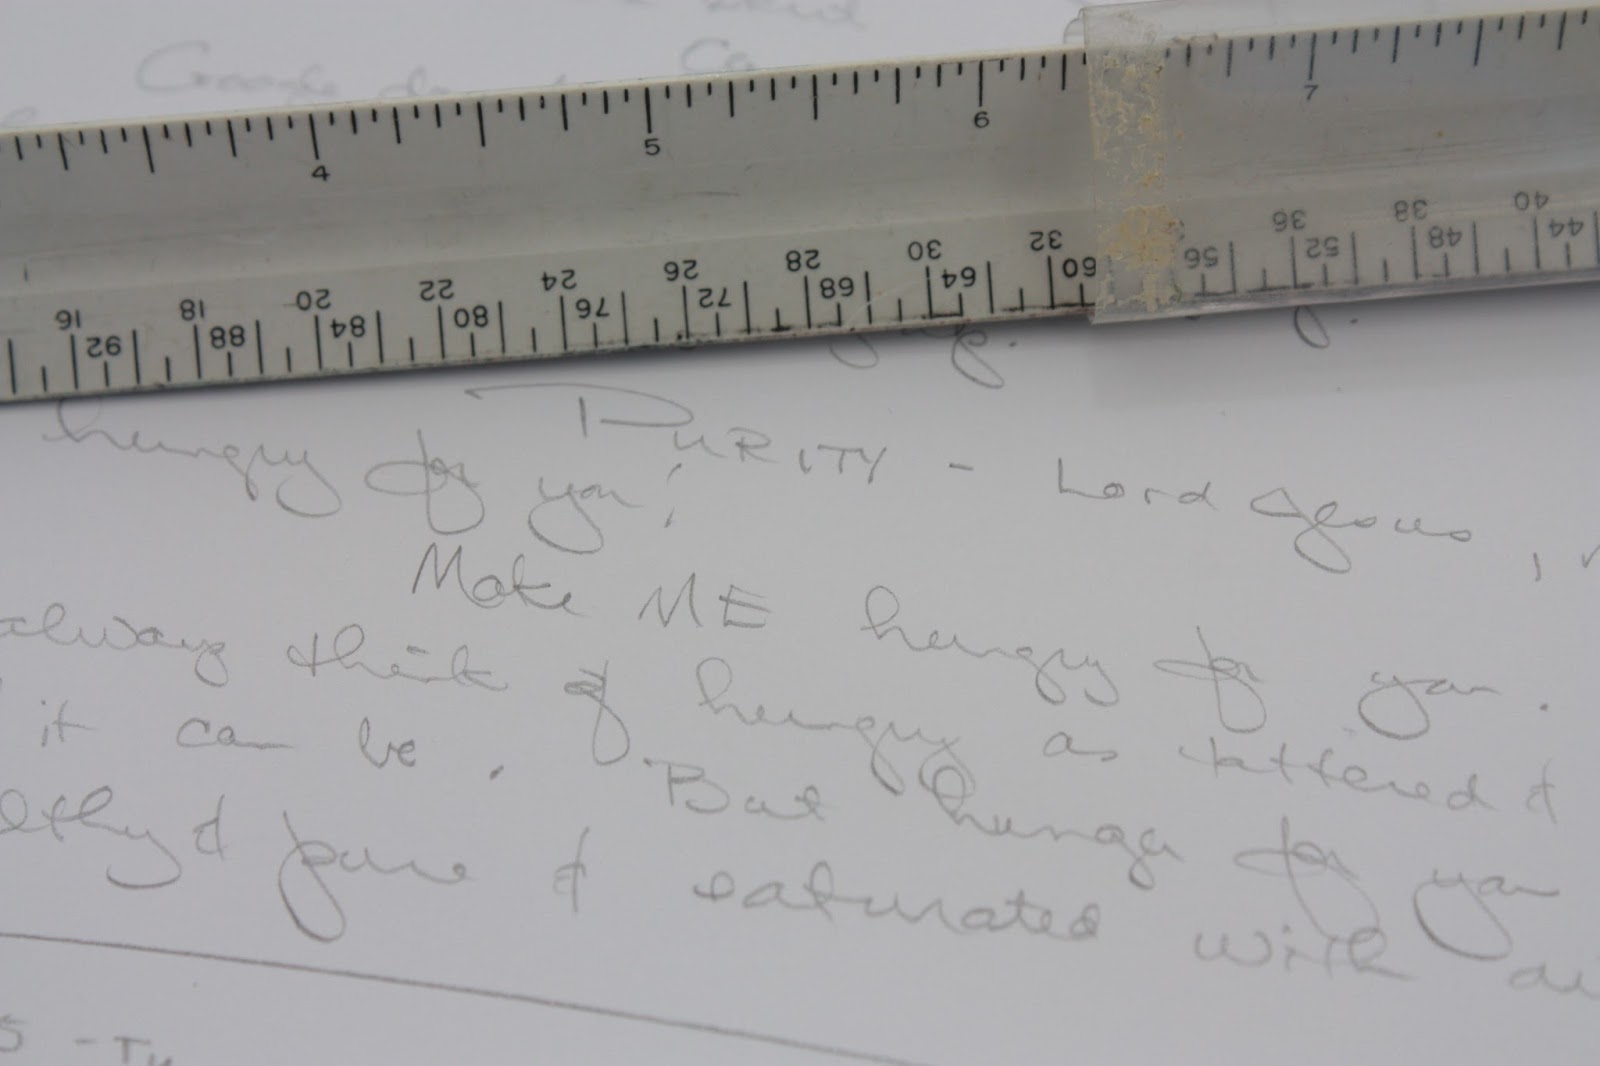 4 5 6 7
16 18 20 22 24 26 28 30 32 36 38 40
92 88 84 80 76 72 68 64 60 56 52 48 44
PURITY - Lord Jesus,
hungry for you;
Make ME hungry for you.
always think of hungry as tattered &
it can be. But hunger for you
& pure & saturated with